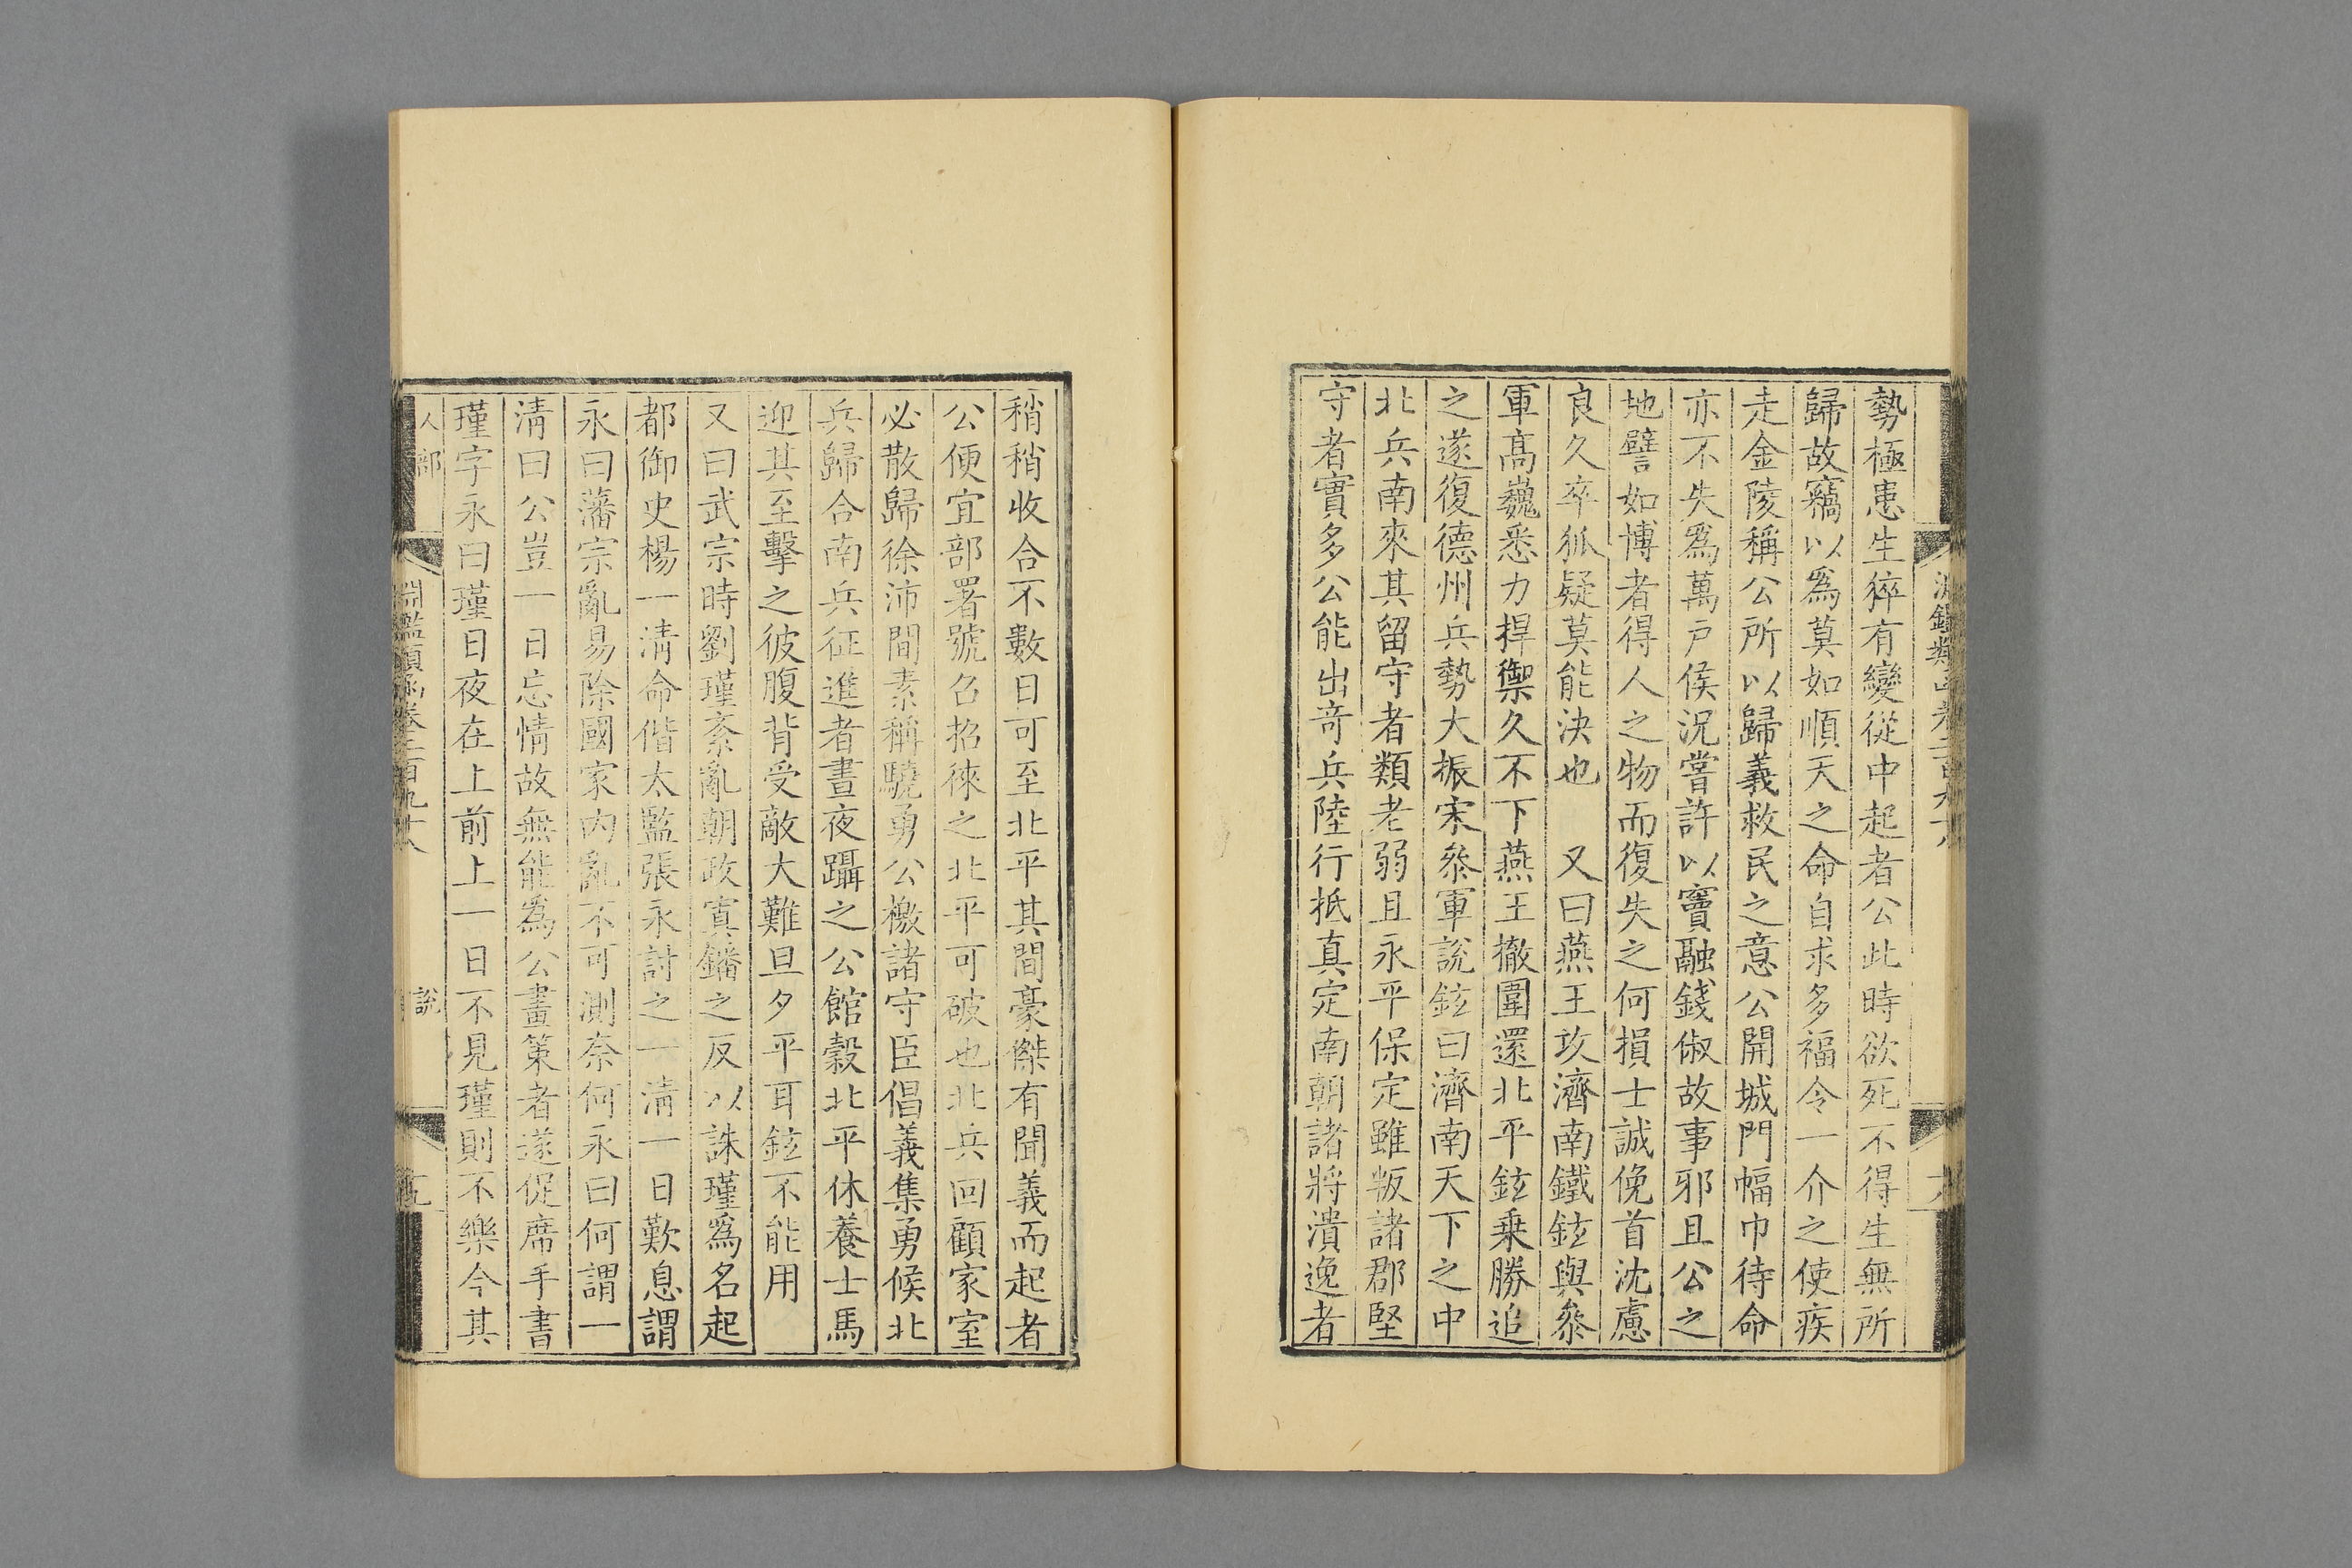 勢極患生猝有變從中起者公此時欲死不得生無所
歸故竊以爲莫如順天之命自求多福令一介之使疾
走金陵稱公所以歸義救民之意公開城門幅巾待命
亦不失爲萬戶侯況嘗許以竇融錢俶故事邪且公之
地譬如博者得人之物而復失之何損士誠俛首沈慮
良久卒狐疑莫能決也　又曰燕王攻濟南鐵鉉與叅
軍高巍悉力捍禦久不下燕王撤圍還北平鉉乗勝追
之遂復德州兵勢大振宋叅軍說鉉曰濟南天下之中
北兵南來其留守者類老弱且永平保定雖叛諸郡堅
守者實多公能出奇兵陸行抵真定南朝諸將潰逸者
稍稍收合不數日可至北平其間豪傑有聞義而起者
公便宜部署號召招徠之北平可破也北兵回顧家室
必散歸徐沛間素稱驍勇公檄諸守臣倡義集勇候北
兵歸合南兵征進者晝夜躡之公館穀北平休養士馬
迎其至擊之彼腹背受敵大難旦夕平耳鉉不能用
又曰武宗時劉瑾紊亂朝政寘鐇之反以誅瑾爲名起
都御史楊一淸命偕太監張永討之一淸一日歎息謂
永曰藩宗亂易除國家內亂不可測奈何永曰何謂一
淸曰公豈一日忘情故無能爲公畫策者遂促席手書
瑾字永曰瑾日夜在上前上一日不見瑾則不樂今其
人部
淵鑑類函卷二百九十八
說